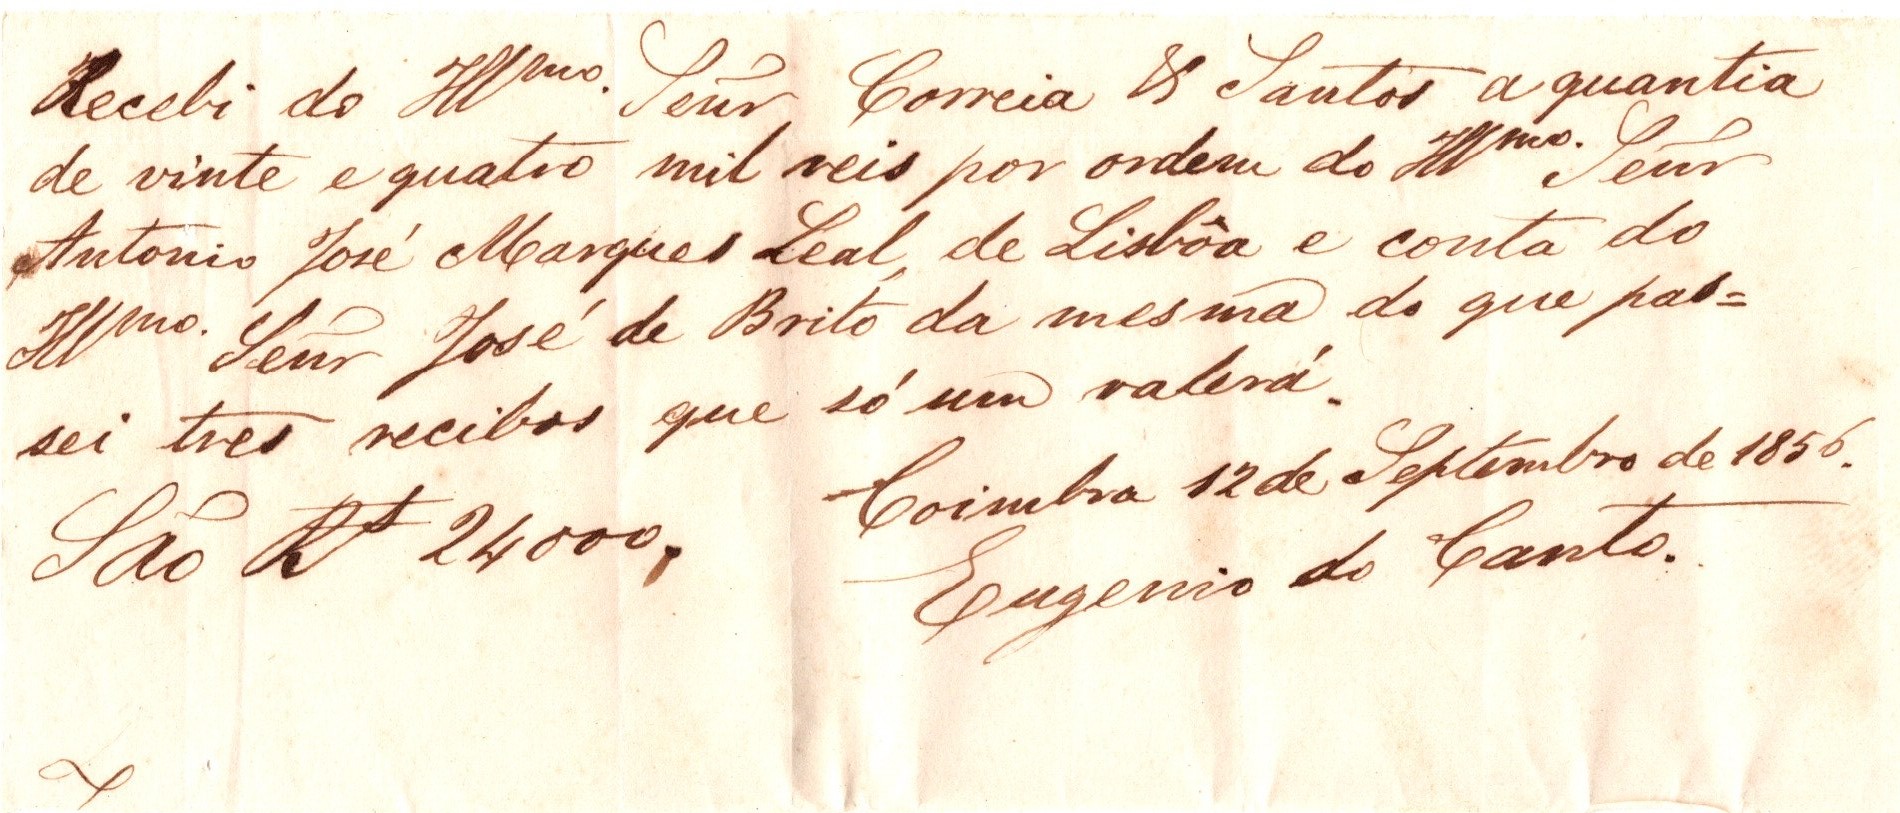 Recebi do Illmo. Señr Correia & Santos a quantia
de vinte e quatro mil reis por ordem do Illmo. Señr
Antonio José Marques Leal, de Lisbôa e conta do
Illmo. Señr José de Brito da mesma do que pas=
sei tres recibos que só um valerá.
Coimbra 12 de Septembro de 1856.
São Rs 24000,
Eugenio do Canto.